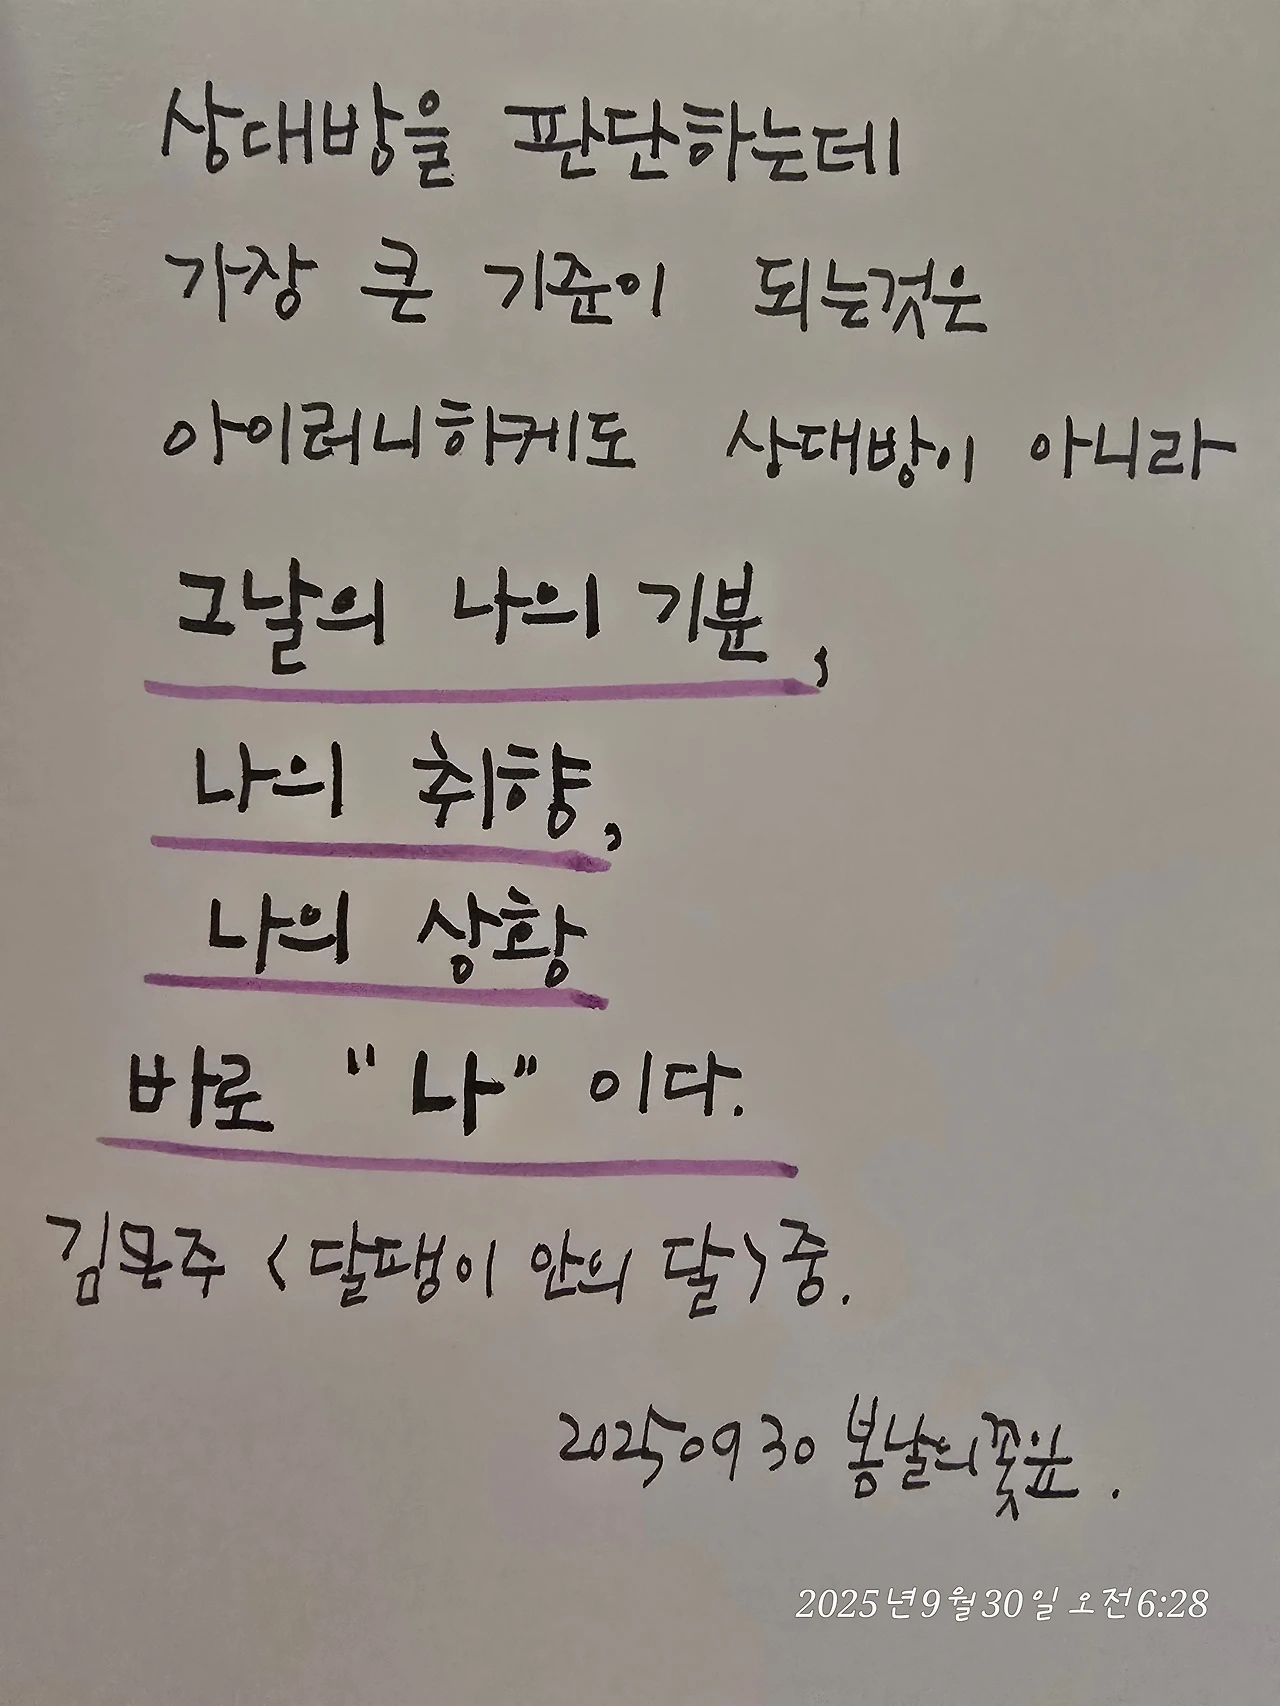 상대방을 판단하는데
가장 큰 기준이 되는것은
아이러니하케도 상대방이 아니라
그날의 나의 기분,
나의 취향,
나의 상황
바로 "나" 이다.
김은주 <달팽이 안의 달> 중.
20250930 봄날의꽃잎.
2025년 9월 30일 오전 6:28